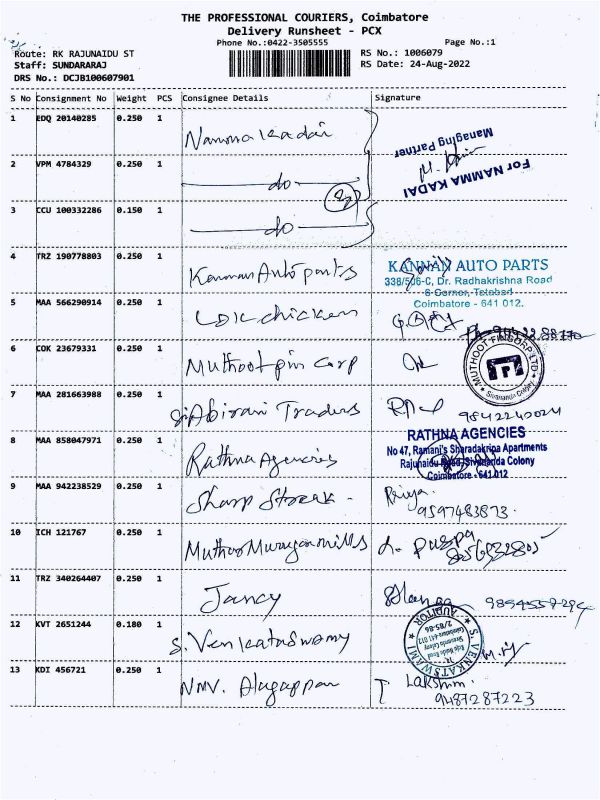 THE PROFESSIONAL COURIERS, Coimbatore
Delivery Runsheet - PCX
Phone No.:0422-3505555
Page No.:1
Route: RK RAJUNAIDU ST
RS No.: 1006079
Staff: SUNDARARAJ
RS Date: 24-Aug-2022
DRS No.: DCJB100607901
S No Consignment No Weight PCS Consignee Details Signature
1 EDQ 20140285 0.250 1 Namma Kadai
For NAMMA KADAI
Managing Partner
2 VPM 4784329 0.250 1 do
3 CCU 100332286 0.150 1 do
4 TRZ 190778803 0.250 1 Kannan Auto parts
KANNAN AUTO PARTS
338/506-C, Dr. Radhakrishna Road
6 Corner, Tatabad
Coimbatore - 641 012.
5 MAA 566290914 0.250 1 chicken
6 COK 23679331 0.250 1 Muthoot pin Corp
MUTHOOT FINCORP LTD
Sivananda Colony
7 MAA 281663988 0.250 1 Sri Abirami Traders
9842240024
8 MAA 858047971 0.250 1 Rathna Agencies
RATHNA AGENCIES
No 47, Ramani's Sharadakripa Apartments
Rajunaidu Road, Sivananda Colony
Coimbatore - 641 012
9 MAA 942238529 0.250 1 Sharp Streak - Priya
9597483873
10 ICH 121767 0.250 1 Muthu Murugan mills
11 TRZ 340264407 0.250 1 Jancy
12 KVT 2651244 0.180 1 S. Venkataswamy
S. VENKATSWAMI
AUDITOR
13 KDI 456721 0.250 1 NMV. Alagappan
T Lakshmi
9487287223